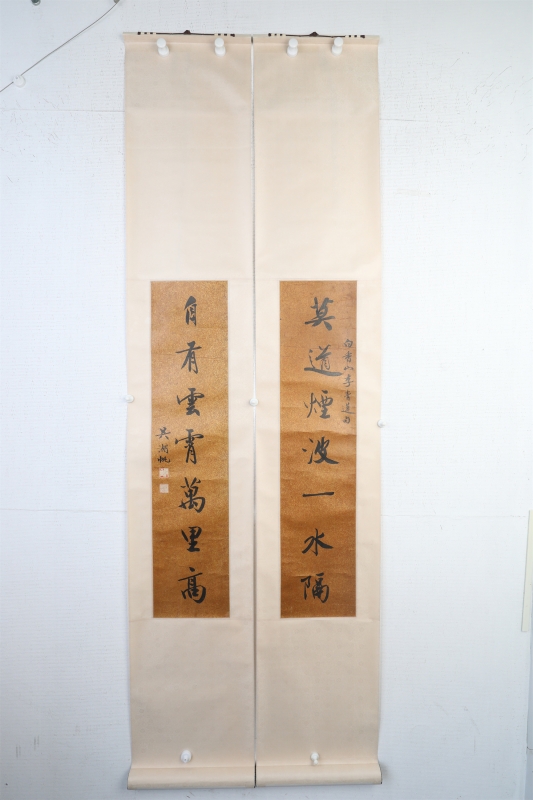 莫道煙波一水隔
白香山李青蓮句
自有雲霄萬里高
吳湖帆